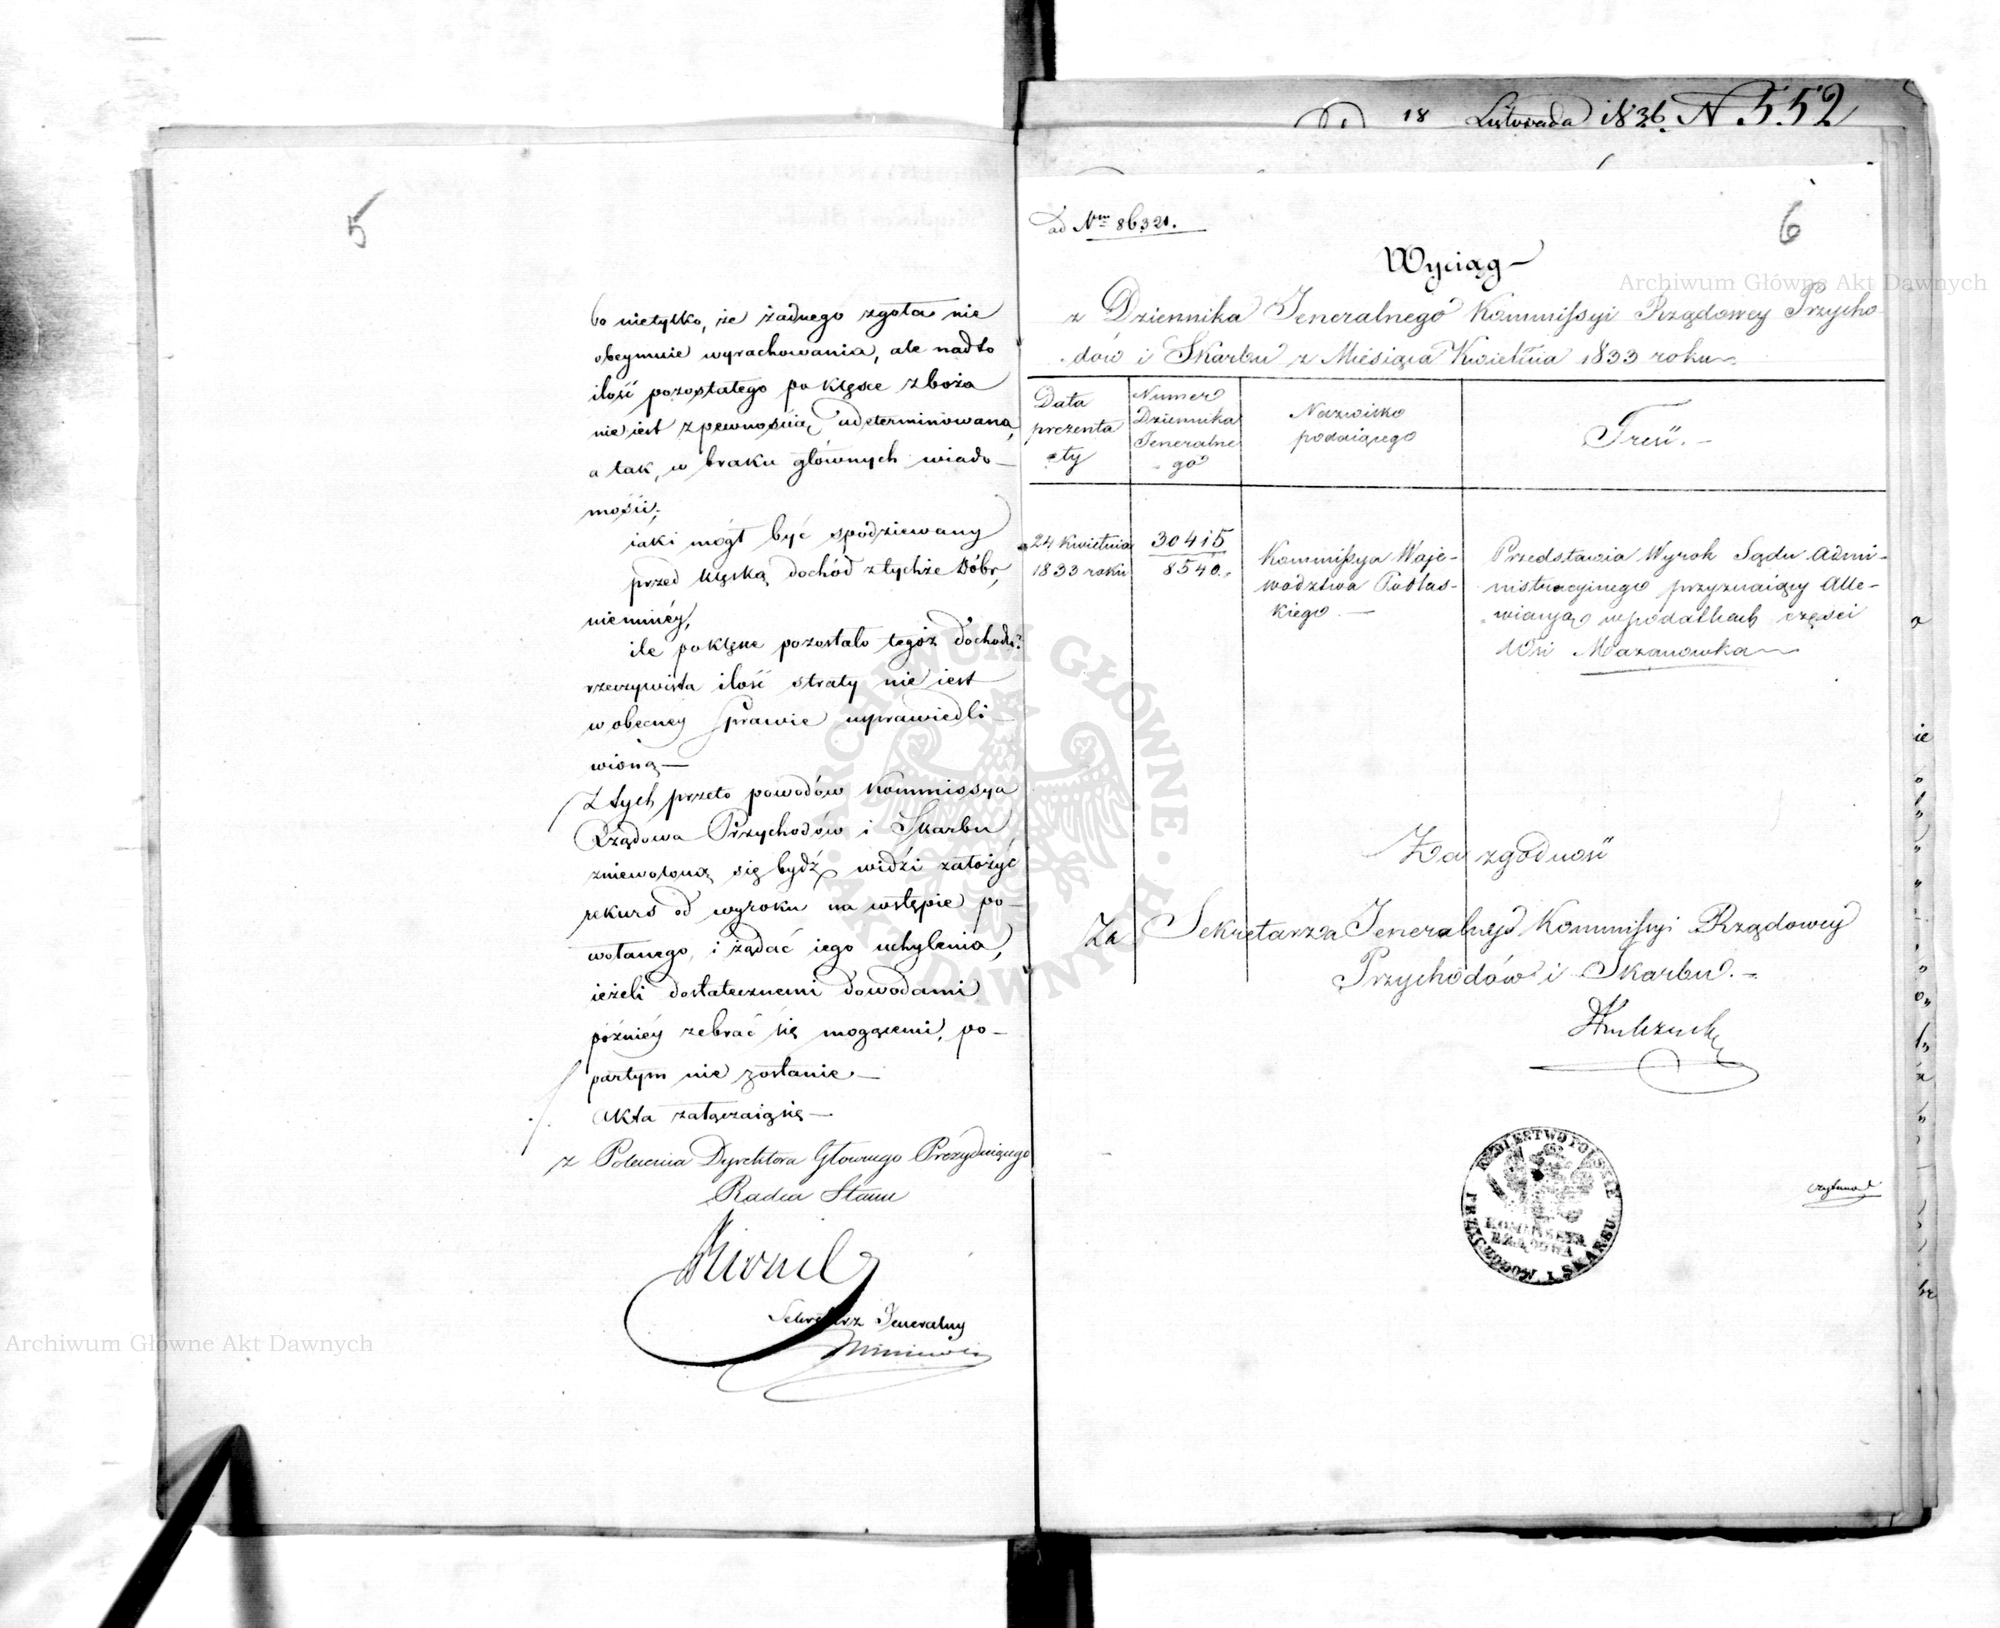 5
bo nietylko, że żadnego zgoła nie
obeymuie wyrachowania, ale nadto
ilość pozostałego po klęsce zboża
nie iest z pewnością udeterminowana,
a tak, w braku głównych wiado-
mości,
iaki mógł być spodziewany
przed klęską dochód z tychże Dóbr,
niemniéy,
ile po klęsce pozostało tegoż dochodu?
rzeczywista ilość straty nie iest
w obecney sprawie usprawiedli-
wioną —
Z tych przeto powodów Kommissya
Rządowa Przychodów i Skarbu
zniewoloną się bydź widzi założyć
rekurs od wyroku na wstępie po-
wołanego, i żądać iego uchylenia,
ieżeli dostatecznemi dowodami
późniéy zebrać się mogącemi, po-
partym nie zostanie. —
Akta załączaią się —
z Polecenia Dyrektora Głównego Prezyduiącego
Radca Stanu
Sekretarz Jeneralny
18 Listopada 1836. N 552
6
ad Nrm 86321.
Wyciąg
z Dziennika Jeneralnego Kommissyi Rządowey Przycho-
dów i Skarbu z Miesiąca Kwietnia 1833 roku
Data
prezenta
ty
Numer
Dziennika
Jeneralne
go
Nazwisko
podaiącego
Treść. —
24 Kwietnia
1833 roku
30415
8540.
Kommissya Woje-
wodztwa Podlas-
kiego. —
Przedstawia Wyrok Sądu Admi-
nistracyinego przyznaiący Alle-
wiacyą w podatkach części
Wsi Mazanówka
Za zgodność
Za Sekretarza Jeneralnego Kommissyi Rządowey
Przychodów i Skarbu. —
KRÓLESTWO POLSKIE
KOMMISSYA
RZĄDOWA
PRZYCHODÓW I SKARBU
czytano
Archiwum Główne Akt Dawnych
Archiwum Główne Akt Dawnych
ARCHIWUM GŁÓWNE · AKT DAWNYCH ·